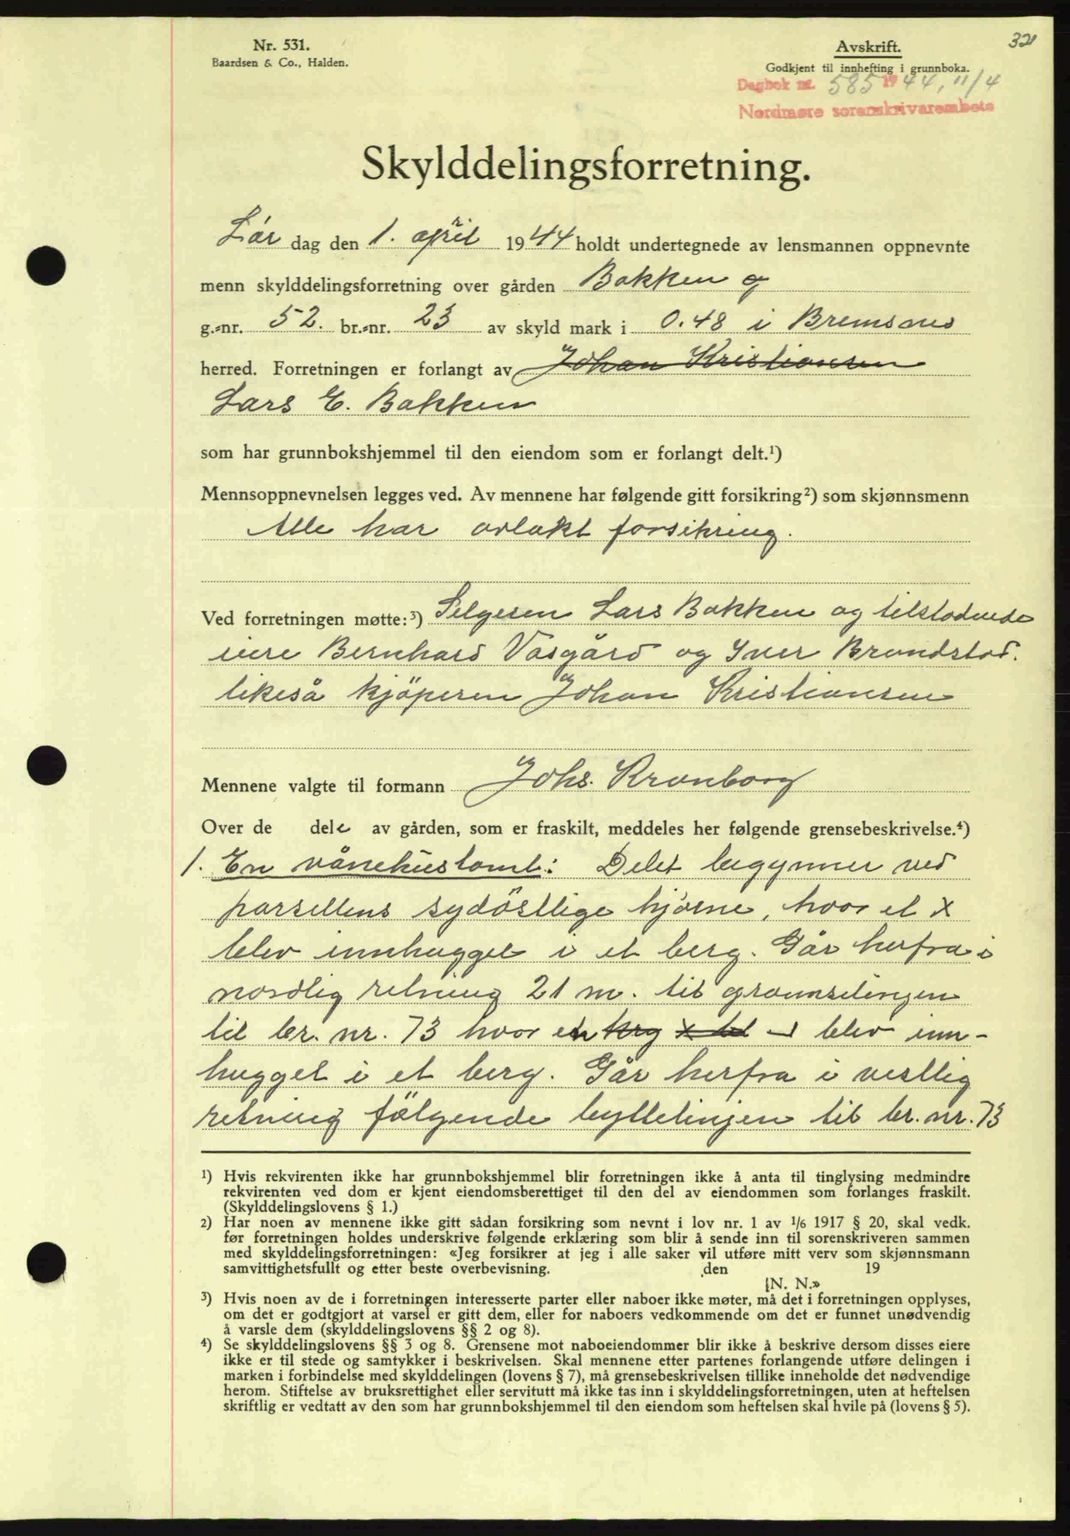 Nr. 531.
Baardsen & Co., Halden.
Avskrift.
Godkjent til innhefting i grunnboka.
321
Dagbok nr. 585 1944, 11/4
Nordmøre sorenskrivarembete
Skylddelingsforretning.
Lör dag den 1. april 1944 holdt undertegnede av lensmannen oppnevnte
menn skylddelingsforretning over gården Bakken og
g.-nr. 52. br.-nr. 23 av skyld mark i 0.48 i Bremsnes
herred. Forretningen er forlangt av Johan Kristiansen
Lars E. Bakken
som har grunnbokshjemmel til den eiendom som er forlangt delt.¹)
Mennsoppnevnelsen legges ved. Av mennene har følgende gitt forsikring²) som skjønnsmenn
Alle har avlakt forsikring.
Ved forretningen møtte:³) Selgeren Lars Bakken og tilstødende
eiere Bernhard Vasgård og Iver Brandstad.
likeså kjöperen Johan Kristiansen
Mennene valgte til formann Johs. Kronborg
Over de dele av gården, som er fraskilt, meddeles her følgende grensebeskrivelse.⁴)
1. En vånehustomt: Delet begynner ved
parsellens sydöstlige hjörne, hvor et x
blev innhugget i et berg. Går herfra i
nordlig retning 21 m. til grannselinjen
til br. nr. 73 hvor en krg x bl ⅃ blev inn-
hugget i et berg. Går herfra i vestlig
retning fölgende byttelinjen til br. nr. 73
¹) Hvis rekvirenten ikke har grunnbokshjemmel blir forretningen ikke å anta til tinglysing medmindre
rekvirenten ved dom er kjent eiendomsberettiget til den del av eiendommen som forlanges fraskilt.
(Skylddelingslovens § 1.)
²) Har noen av mennene ikke gitt sådan forsikring som nevnt i lov nr. 1 av 1/6 1917 § 20, skal vedk.
før forretningen holdes underskrive følgende erklæring som blir å sende inn til sorenskriveren sammen
med skylddelingsforretningen: «Jeg forsikrer at jeg i alle saker vil utføre mitt verv som skjønnsmann
samvittighetsfullt og etter beste overbevisning. den 19
[N. N.»
³) Hvis noen av de i forretningen interesserte parter eller naboer ikke møter, må det i forretningen opplyses,
om det er godtgjort at varsel er gitt dem, eller for naboers vedkommende om det er funnet unødvendig
å varsle dem (skylddelingslovens §§ 2 og 8).
⁴) Se skylddelingslovens §§ 3 og 8. Grensene mot naboeiendommer blir ikke å beskrive dersom disses eiere
ikke er til stede og samtykker i beskrivelsen. Skal mennene etter partenes forlangende utføre delingen i
marken i forbindelse med skylddelingen (lovens § 7), må grensebeskrivelsen tillike inneholde det nødvendige
herom. Stiftelse av bruksrettighet eller servitutt må ikke tas inn i skylddelingsforretningen, uten at heftelsen
skriftlig er vedtatt av den som har grunnbokshjemmel til den eiendom som heftelsen skal hvile på (lovens § 5).